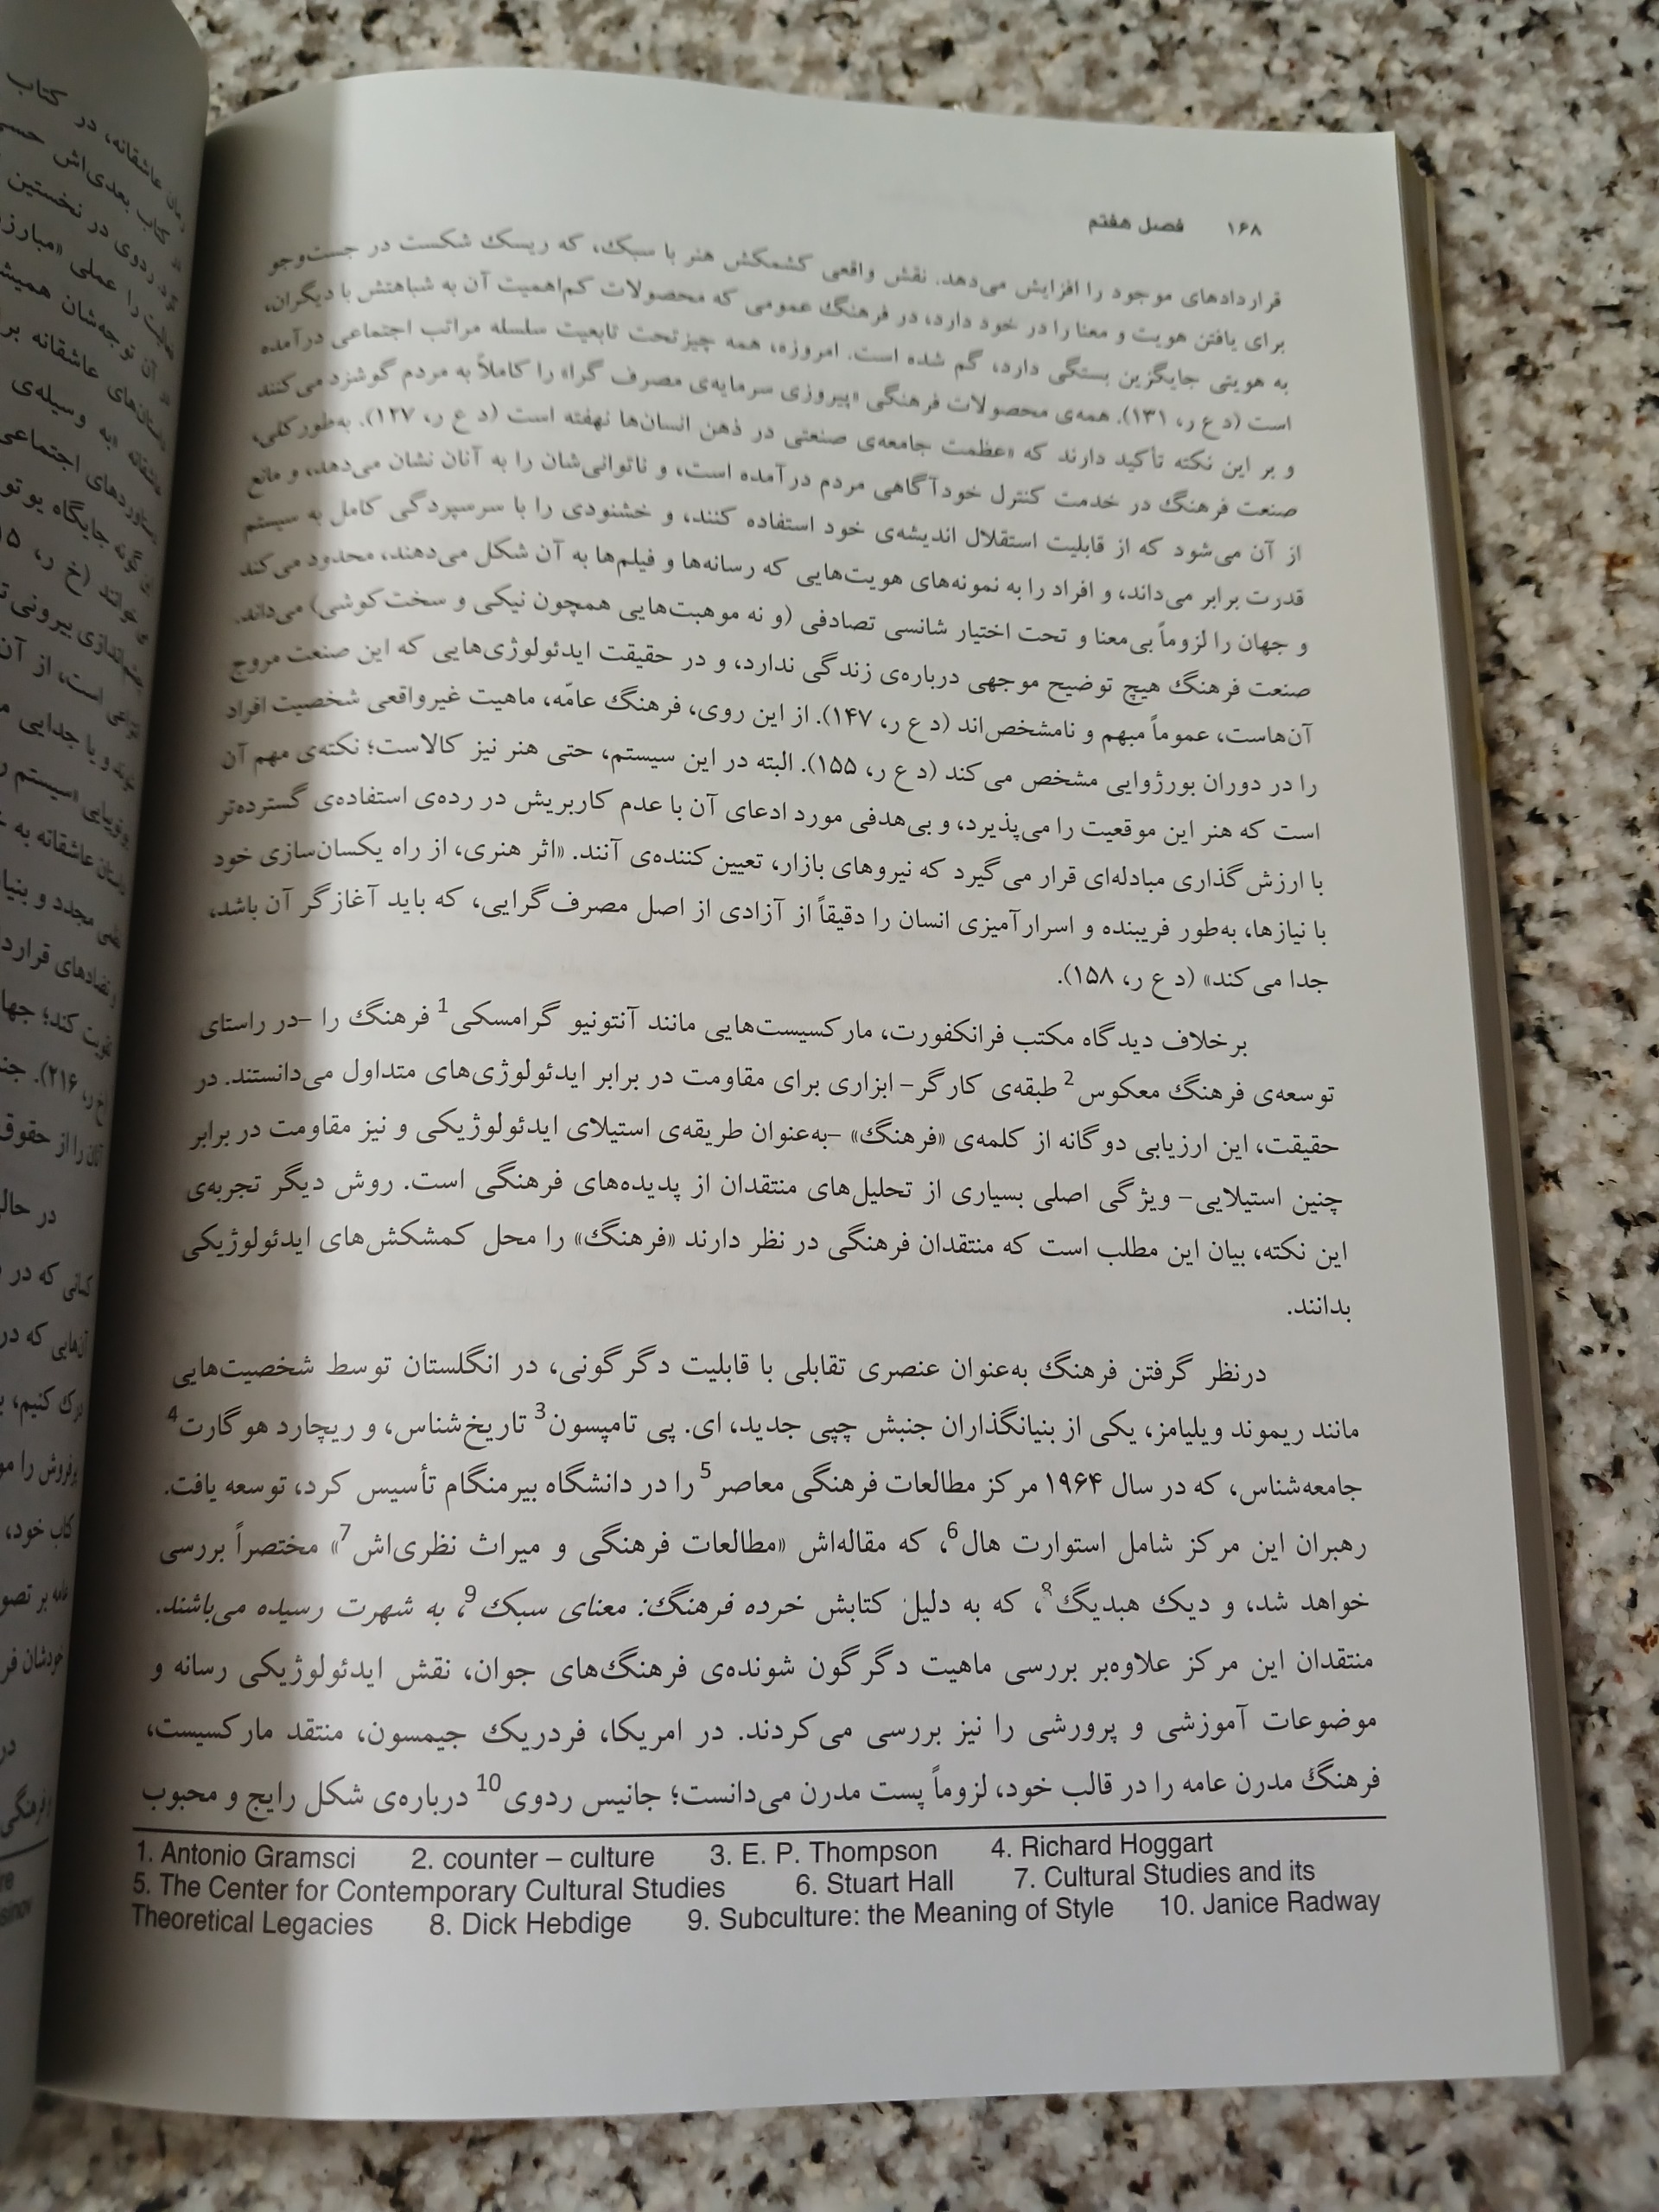 ۱۶۸ فصل هفتم
قراردادهای موجود را افزایش می‌دهد. نقش واقعی کشمکش هنر با سبک، که ریسک شکست در جست‌وجو
برای یافتن هویت و معنا را در خود دارد، در فرهنگ عمومی که محصولات کم‌اهمیت آن به شباهتش با دیگران،
به هویتی جایگزین بستگی دارد، گم شده است. امروزه، همه چیز تحت تابعیت سلسله مراتب اجتماعی درآمده
است (د ع ر، ۱۳۱). همه‌ی محصولات فرهنگی «پیروزی سرمایه‌ی مصرف گرا» را کاملاً به مردم گوشزد می‌کنند
و بر این نکته تأکید دارند که «عظمت جامعه‌ی صنعتی در ذهن انسان‌ها نهفته است (د ع ر، ۱۲۷). به‌طور کلی،
صنعت فرهنگ در خدمت کنترل خودآگاهی مردم درآمده است، و ناتوانی‌شان را به آنان نشان می‌دهد، و مانع
از آن می‌شود که از قابلیت استقلال اندیشه‌ی خود استفاده کنند، و خشنودی را با سرسپردگی کامل به سیستم
قدرت برابر می‌داند، و افراد را به نمونه‌های هویت‌هایی که رسانه‌ها و فیلم‌ها به آن شکل می‌دهند، محدود می‌کند
و جهان را لزوماً بی‌معنا و تحت اختیار شانسی تصادفی (و نه موهبت‌هایی همچون نیکی و سخت‌کوشی) می‌داند.
صنعت فرهنگ هیچ توضیح موجهی درباره‌ی زندگی ندارد، و در حقیقت ایدئولوژی‌هایی که این صنعت مروج
آن‌هاست، عموماً مبهم و نامشخص‌اند (د ع ر، ۱۴۷). از این روی، فرهنگ عامّه، ماهیت غیرواقعی شخصیت افراد
را در دوران بورژوایی مشخص می‌کند (د ع ر، ۱۵۵). البته در این سیستم، حتی هنر نیز کالاست؛ نکته‌ی مهم آن
است که هنر این موقعیت را می‌پذیرد، و بی‌هدفی مورد ادعای آن با عدم کاربریش در رده‌ی استفاده‌ی گسترده‌تر
با ارزش گذاری مبادله‌ای قرار می گیرد که نیروهای بازار، تعیین‌کننده‌ی آنند. «اثر هنری، از راه یکسان‌سازی خود
با نیازها، به‌طور فریبنده و اسرارآمیزی انسان را دقیقاً از آزادی از اصل مصرف گرایی، که باید آغازگر آن باشد،
جدا می‌کند» (د ع ر، ۱۵۸).
برخلاف دیدگاه مکتب فرانکفورت، مارکسیست‌هایی مانند آنتونیو گرامسکی1 فرهنگ را –در راستای
توسعه‌ی فرهنگ معکوس2 طبقه‌ی کارگر– ابزاری برای مقاومت در برابر ایدئولوژی‌های متداول می‌دانستند. در
حقیقت، این ارزیابی دوگانه از کلمه‌ی «فرهنگ» –به‌عنوان طریقه‌ی استیلای ایدئولوژیکی و نیز مقاومت در برابر
چنین استیلایی– ویژگی اصلی بسیاری از تحلیل‌های منتقدان از پدیده‌های فرهنگی است. روش دیگر تجربه‌ی
این نکته، بیان این مطلب است که منتقدان فرهنگی در نظر دارند «فرهنگ» را محل کمشکش‌های ایدئولوژیکی
بدانند.
درنظر گرفتن فرهنگ به‌عنوان عنصری تقابلی با قابلیت دگرگونی، در انگلستان توسط شخصیت‌هایی
مانند ریموند ویلیامز، یکی از بنیانگذاران جنبش چپی جدید، ای. پی تامپسون3 تاریخ‌شناس، و ریچارد هوگارت4
جامعه‌شناس، که در سال ۱۹۶۴ مرکز مطالعات فرهنگی معاصر5 را در دانشگاه بیرمنگام تأسیس کرد، توسعه یافت.
رهبران این مرکز شامل استوارت هال6، که مقاله‌اش «مطالعات فرهنگی و میراث نظری‌اش7» مختصراً بررسی
خواهد شد، و دیک هبدیگ8، که به دلیل کتابش خرده فرهنگ: معنای سبک9، به شهرت رسیده می‌باشند.
منتقدان این مرکز علاوه‌بر بررسی ماهیت دگرگون شونده‌ی فرهنگ‌های جوان، نقش ایدئولوژیکی رسانه و
موضوعات آموزشی و پرورشی را نیز بررسی می‌کردند. در امریکا، فردریک جیمسون، منتقد مارکسیست،
فرهنگ مدرن عامه را در قالب خود، لزوماً پست مدرن می‌دانست؛ جانیس ردوی10 درباره‌ی شکل رایج و محبوب
1. Antonio Gramsci 2. counter – culture 3. E. P. Thompson 4. Richard Hoggart
5. The Center for Contemporary Cultural Studies 6. Stuart Hall 7. Cultural Studies and its
Theoretical Legacies 8. Dick Hebdige 9. Subculture: the Meaning of Style 10. Janice Radway